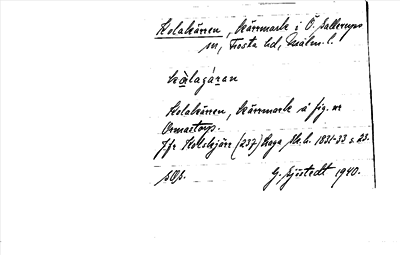 Kolakärren, kärrmark i Ö. Sallerups
sn, Frosta hd, Malm. l.
kå̀lagá̱ran
Kolakärren, kärrmark å fig. nr
Ormastorp.
Jfr Kolebjär (237) Laga sk. h. 1831-33 s. 23.
s. 08.
G. Sjöstedt 1940.